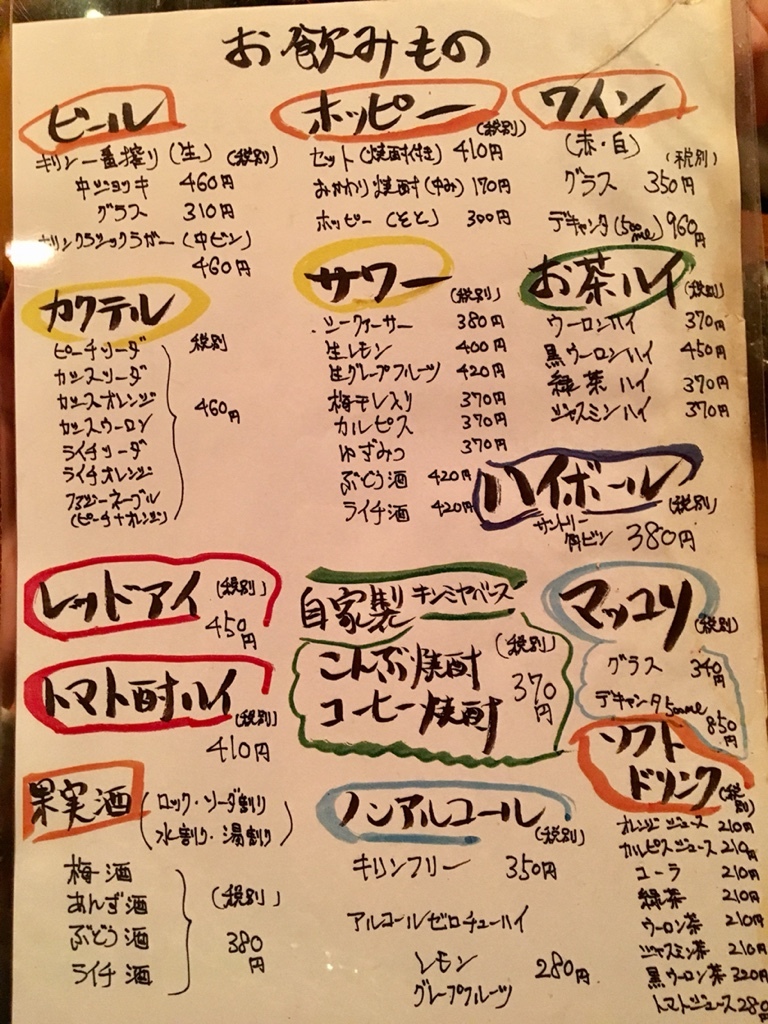 お飲みもの
ビール
キリン一番搾り(生) (税別)
中ジョッキ 460円
グラス 310円
キリンクラシックラガー(中ビン)
460円
ホッピー
(税別)
セット(焼酎付き) 410円
おかわり焼酎(中み) 170円
ホッピー(そと) 300円
ワイン
(赤・白)
(税別)
グラス 350円
デキャンタ(500ml) 960円
カクテル
税別
ピーチソーダ
カシスソーダ
カシスオレンジ
カシスウーロン
ライチソーダ
ライチオレンジ
ファジーネーブル
(ピーチ+オレンジ)
460円
サワー
(税別)
シークァーサー 380円
生レモン 400円
生グレープフルーツ 420円
梅干し入り 370円
カルピス 370円
ゆずみつ 370円
ぶどう酒 420円
ライチ酒 420円
お茶ルイ
(税別)
ウーロンハイ 370円
黒ウーロンハイ 450円
緑茶ハイ 370円
ジャスミンハイ 370円
ハイボール
(税別)
サントリー
角ビン 380円
レッドアイ (税別)
450円
トマト酎ハイ (税別)
410円
自家製 キンミヤベース
こんぶ焼酎 (税別)
コーヒー焼酎 370円
マッコリ (税別)
グラス 340円
デキャンタ500ml 850円
果実酒 (ロック・ソーダ割り
水割り・湯割り)
梅酒
あんず酒
ぶどう酒
ライチ酒
(税別)
380円
ノンアルコール
(税別)
キリンフリー 350円
アルコールゼロチューハイ
レモン
グレープフルーツ
280円
ソフト
ドリンク (税別)
オレンジジュース 210円
カルピスジュース 210円
コーラ 210円
緑茶 210円
ウーロン茶 210円
ジャスミン茶 210円
黒ウーロン茶 320円
トマトジュース 280円